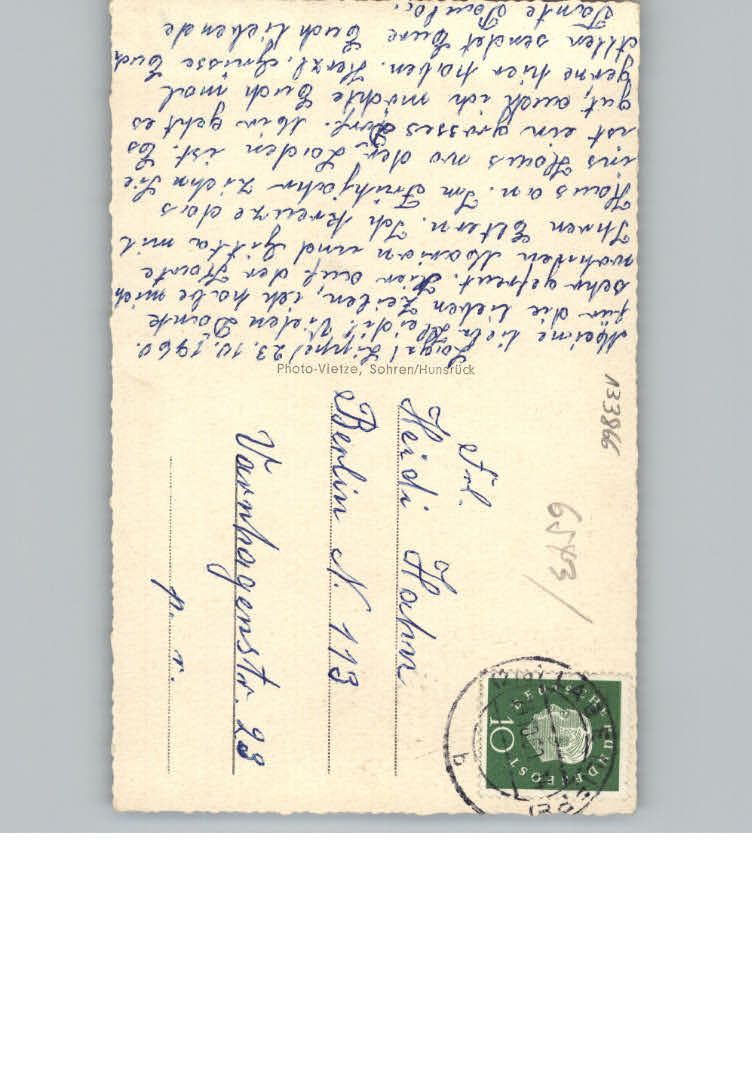 Lage/Lippe/ 23.10.1960.
Meine liebe Heidi! Vielen Dank
für die lieben Zeilen, ich habe mich
sehr gefreut. Hier auf der Karte
wohnten Marian und Gitta mit
Ihren Eltern. Ich kreuze das
Haus an. Im Frühjahr ziehn Sie
ins Haus wo der Laden ist. Es
ist ein grosses Dorf. Mir geht es
gut, auch ich möchte Euch mal
gerne hier haben. Herzl. Grüsse Euch
Allen sendet Eure Euch liebende
Tante Paula.
Photo-Vietze, Sohren/Hunsrück
Frl.
Heidi Hahn
Berlin N. 113
Varnhagenstr. 23
p. r.
133866
6543/
DEUTSCHE
BUNDESPOST
10
b